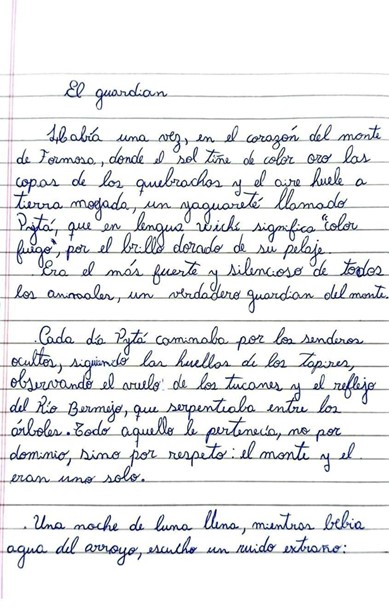 El guardian
Había una vez, en el corazón del monte
de Formosa, donde el sol tiñe de color oro las
copas de los quebrachos y el aire huele a
tierra mojada, un yaguareté llamado
Pytá, que en lengua wichi significa "color
fuego", por el brillo dorado de su pelaje.
Era el más fuerte y silencioso de todos
los animales, un verdadero guardian del monte.
Cada día Pytá caminaba por los senderos
ocultos, siguiendo las huellas de los tapires,
observando el vuelo de los tucanes y el reflejo
del Río Bermejo, que serpenteaba entre los
árboles. Todo aquello le pertenecía, no por
dominio, sino por respeto: el monte y el
eran uno solo.
. Una noche de luna llena, mientras bebia
agua del arroyo, escucho un ruido extraño: